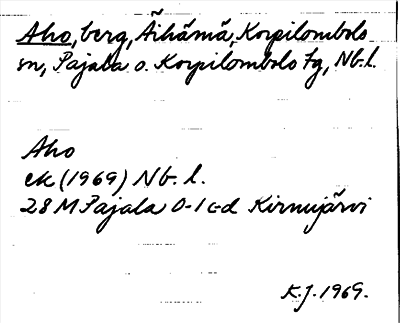 Aho, berg, Äihämä, Korpilombolo
sn, Pajala o. Korpilombolo tg, Nb. l.
Aho
ek (1969) Nb. l.
28 M Pajala 0-1 c-d Kirnujärvi
K.J. 1969.